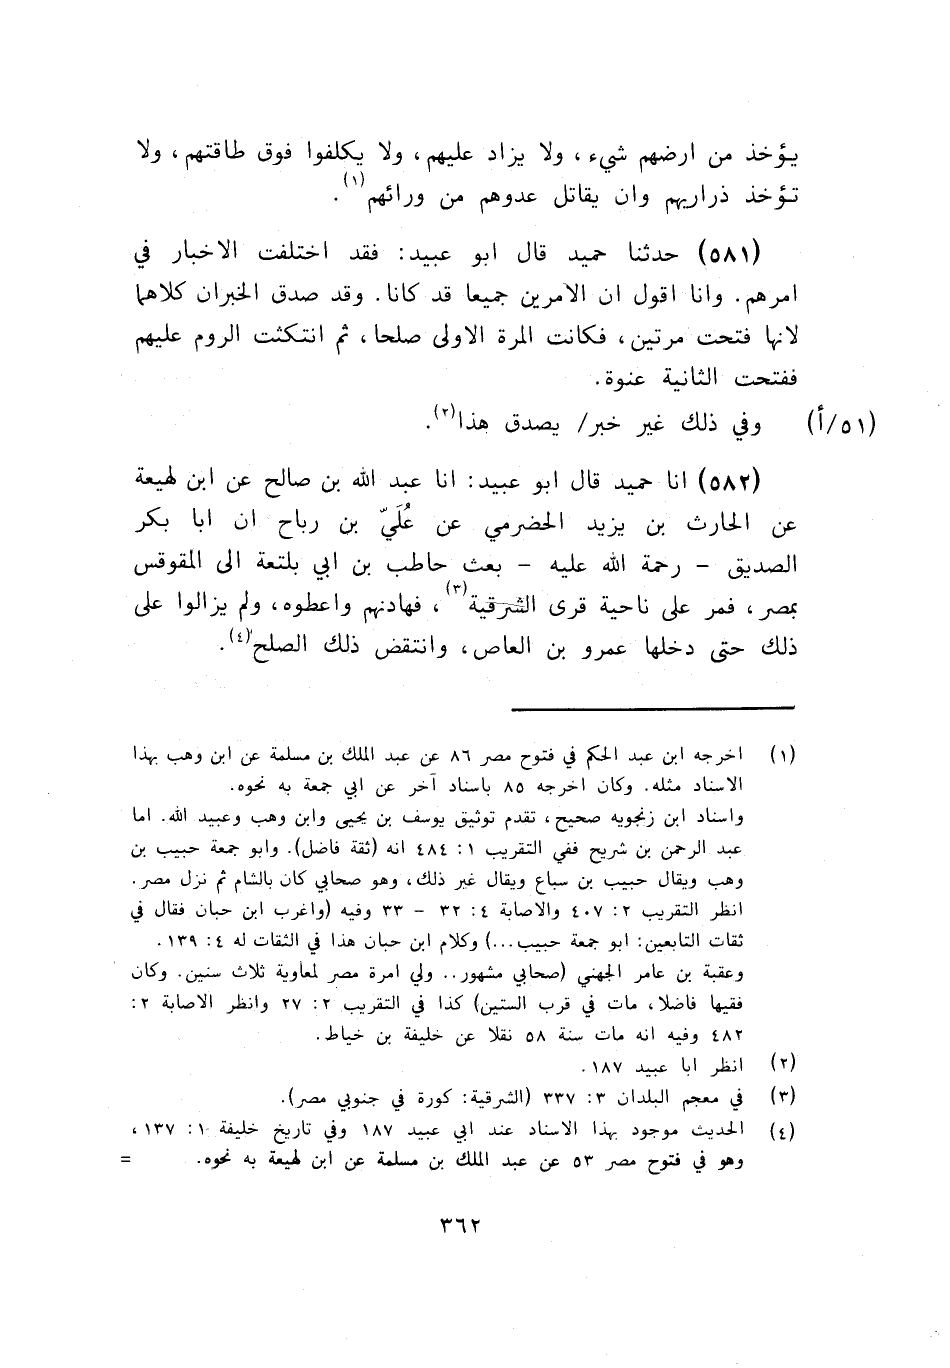 يؤخذ من ارضهم شيء، ولا يزاد عليهم، ولا يكلفوا فوق طاقتهم، ولا
تؤخذ ذراريهم وان يقاتل عدوهم من ورائهم(١).
(٥٨١) حدثنا حميد قال ابو عبيد: فقد اختلفت الاخبار في
امرهم. وانا اقول ان الامرين جميعا قد كانا. وقد صدق الخبران كلاهما
لانها فتحت مرتين، فكانت المرة الاولى صلحا، ثم انتكثت الروم عليهم
ففتحت الثانية عنوة.
(٥١/أ) وفي ذلك غير خبر/ يصدق هذا(٢).
(٥٨٢) انا حميد قال ابو عبيد: انا عبد الله بن صالح عن ابن لهيعة
عن الحارث بن يزيد الحضرمي عن عُلَيّ بن رباح ان ابا بكر
الصديق - رحمة الله عليه - بعث حاطب بن ابي بلتعة الى المقوقس
بمصر، فمر على ناحية قرى الشرقية(٣)، فهادنهم واعطوه، ولم يزالوا على
ذلك حتى دخلها عمرو بن العاص، وانتقض ذلك الصلح(٤).
(١) اخرجه ابن عبد الحكم في فتوح مصر ٨٦ عن عبد الملك بن مسلمة عن ابن وهب بهذا
الاسناد مثله. وكان اخرجه ٨٥ باسناد آخر عن ابي جمعة به نحوه.
واسناد ابن زنجويه صحيح، تقدم توثيق يوسف بن يحيى وابن وهب وعبيد الله. اما
عبد الرحمن بن شريح ففي التقريب ١: ٤٨٤ انه (ثقة فاضل). وابو جمعة حبيب بن
وهب ويقال حبيب بن سباع ويقال غير ذلك، وهو صحابي كان بالشام ثم نزل مصر.
انظر التقريب ٢: ٤٠٧ والاصابة ٤: ٣٢ - ٣٣ وفيه (واغرب ابن حبان فقال في
ثقات التابعين: ابو جمعة حبيب...) وكلام ابن حبان هذا في الثقات له ٤: ١٣٩.
وعقبة بن عامر الجهني (صحابي مشهور.. ولي امرة مصر لمعاوية ثلاث سنين. وكان
فقيها فاضلا، مات في قرب الستين) كذا في التقريب ٢: ٢٧ وانظر الاصابة ٢:
٤٨٢ وفيه انه مات سنة ٥٨ نقلا عن خليفة بن خياط.
(٢) انظر ابا عبيد ١٨٧.
(٣) في معجم البلدان ٣: ٣٣٧ (الشرقية: كورة في جنوبي مصر).
(٤) الحديث موجود بهذا الاسناد عند ابي عبيد ١٨٧ وفي تاريخ خليفة ١: ١٣٧،
وهو في فتوح مصر ٥٣ عن عبد الملك بن مسلمة عن ابن لهيعة به نحوه. =
٣٦٢